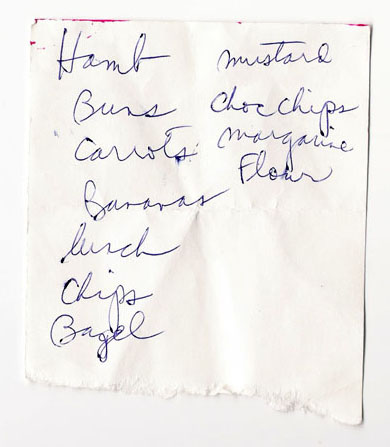 Hamb
Buns
Carrots
Bananas
lunch
Chips
Bagel
mustard
Choc Chips
margarine
Flour